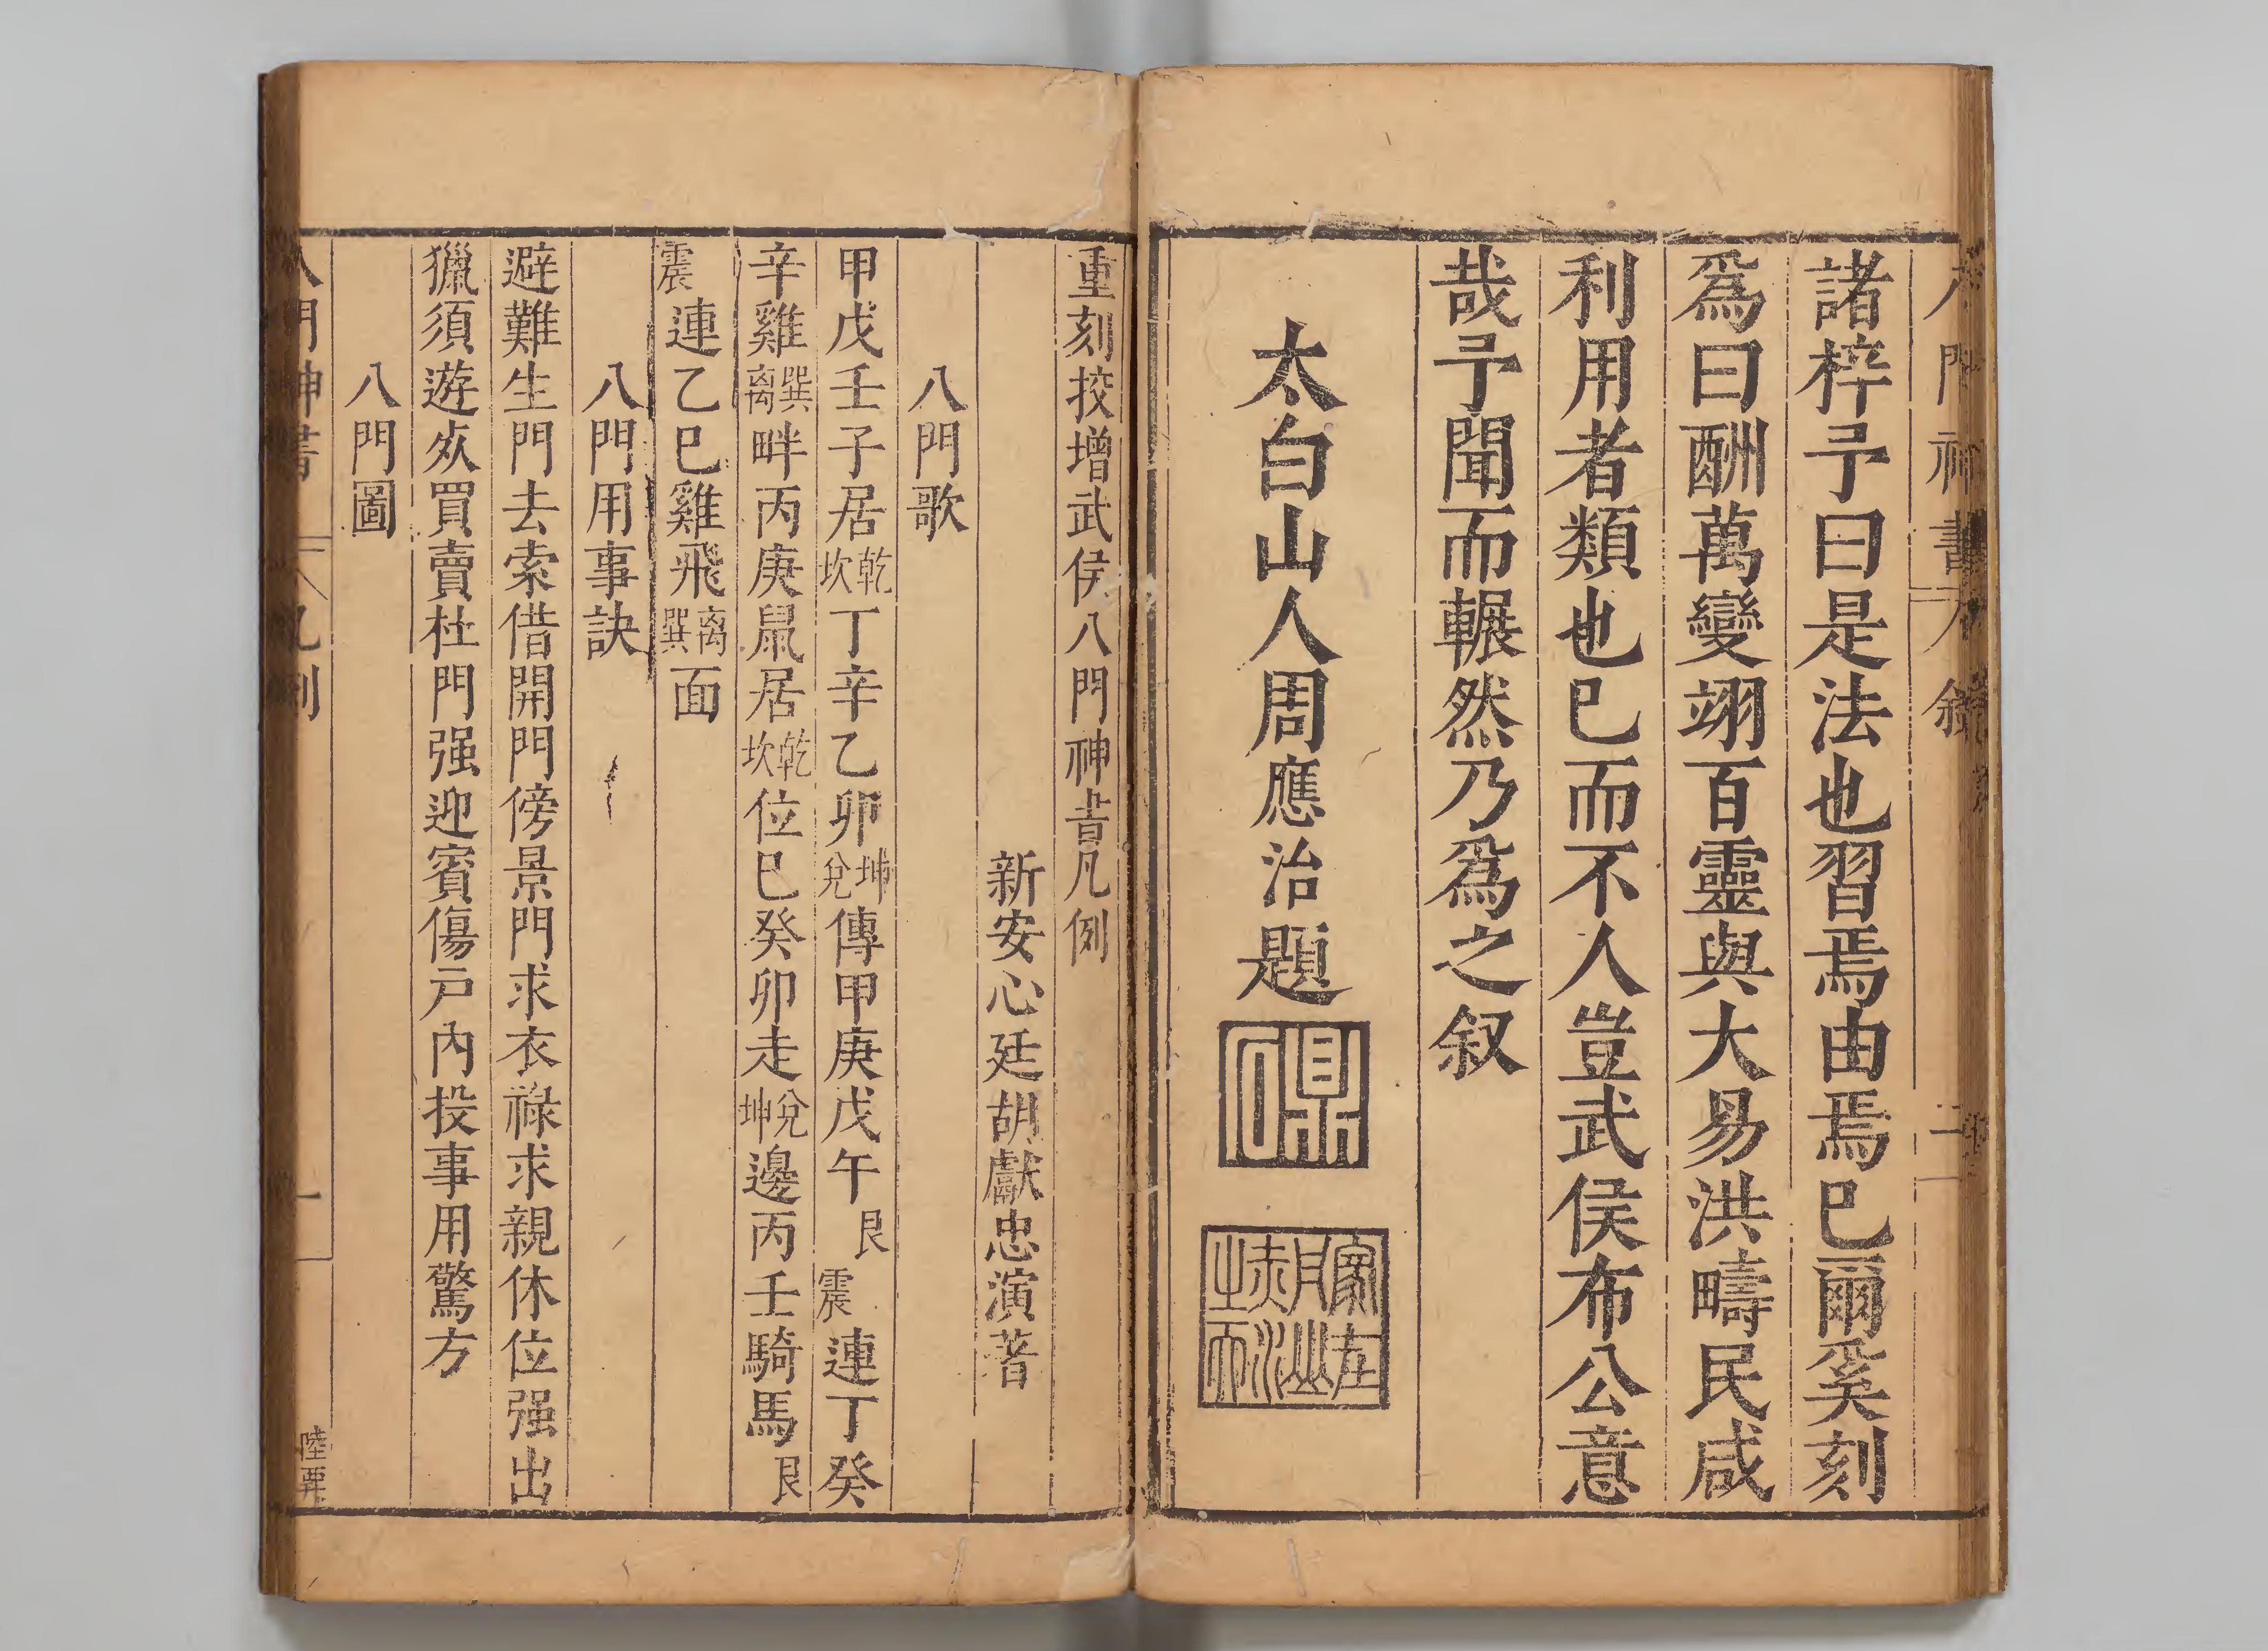 諸梓予曰是法也習焉由焉巳爾奚刻
爲曰酬萬變翊百靈與大易洪疇民咸
利用者類也巳而不人豈武侯布公意
哉予聞而輾然乃爲之叙
太白山人周應治題
重刻挍增武侯八門神書凡例
新安心廷胡獻忠演著
八門歌
甲戊壬子居乾坎丁辛乙卯坤兌傳甲庚戊午艮震連丁癸
辛雞巽离畔丙庚鼠居乾坎位巳癸卯走兌坤邊丙壬騎馬艮
震連乙巳雞飛离巽面
八門用事訣
避難生門去索借開門傍景門求衣祿求親休位强出
獵須遊㱔買賣杜門强迎賓傷戸內投事用驚方
八門圖
八門神書
凡例
一